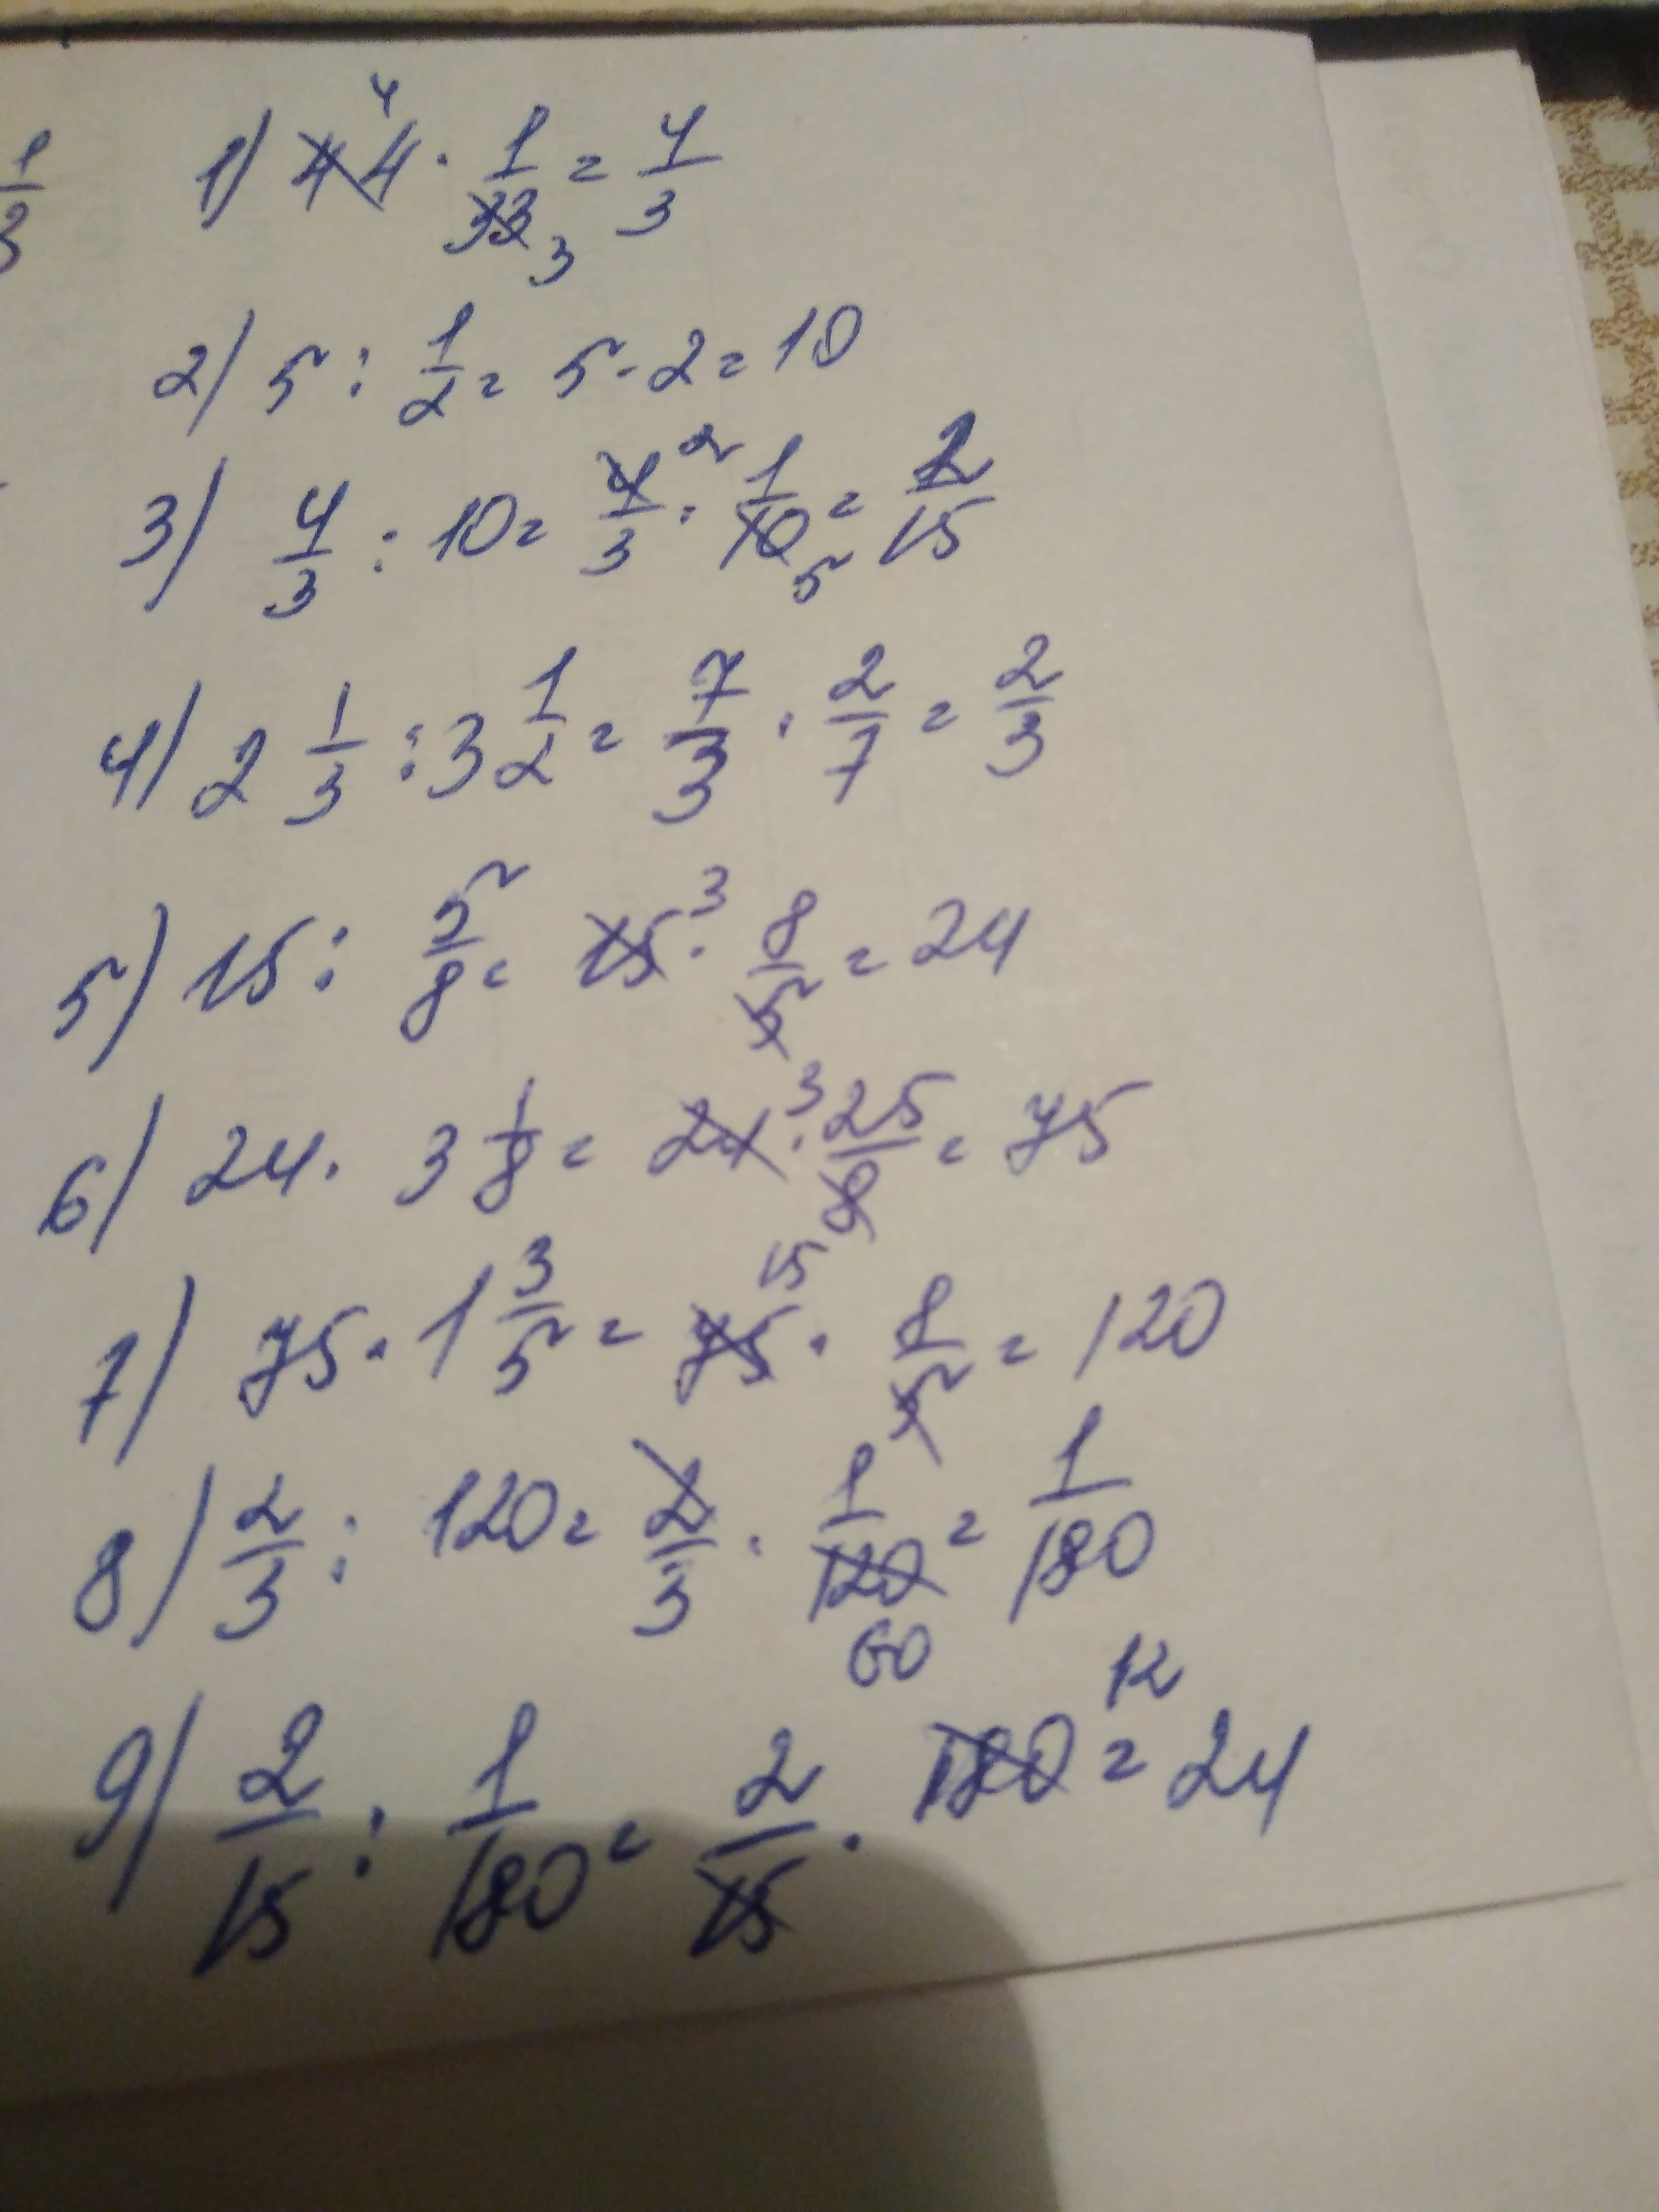 1/3
1) 44 · 1/33 = 4/3
2) 5 : 1/2 = 5 · 2 = 10
3) 4/3 : 10 = 4/3 · 1/10 = 2/15
4) 2 1/3 : 3 1/2 = 7/3 · 2/7 = 2/3
5) 15 : 5/8 = 15 · 8/5 = 24
6) 24 · 3 1/8 = 24 · 25/8 = 75
7) 75 · 1 3/5 = 75 · 8/5 = 120
8) 2/3 : 120 = 2/3 · 1/120 = 1/180
9) 2/15 : 1/180 = 2/15 · 180 = 24